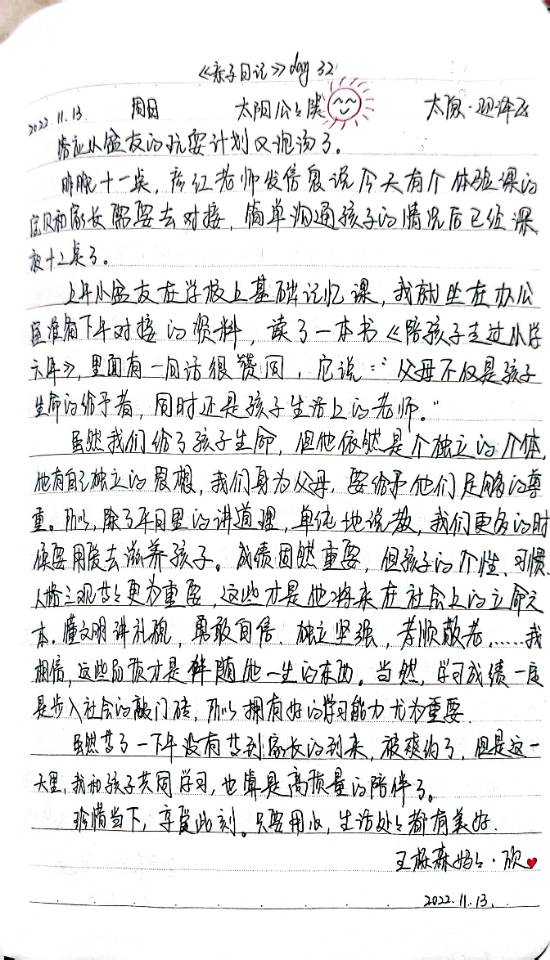 《亲子日记》day 32
2022.11.13. 周日 太阳公公笑 太原·迎泽区
答应小盆友的玩耍计划又泡汤了。
昨晚十一点,彦红老师发信息说今天有个体验课的
宝贝和家长需要去对接,简单沟通孩子的情况后已经深
夜十二点了。
上午小盆友在学校上基础记忆课,我就坐在办公
室准备下午对接的资料,读了一本书《陪孩子走过小学
六年》,里面有一句话很赞同,它说:“父母不仅是孩子
生命的给予者,同时还是孩子生活上的老师。”
虽然我们给了孩子生命,但他依然是个独立的个体,
他有自己独立的思想,我们身为父母,要给予他们足够的尊
重。所以,除了平日里的讲道理,单纯地说教,我们更多的时
候要用爱去滋养孩子。成绩固然重要,但孩子的个性、习惯、
人格三观等等更为重要,这些才是他将来在社会上的立命之
本。懂文明讲礼貌,勇敢自信、独立坚强,孝顺敬老,……我
相信,这些品质才是伴随他一生的东西。当然,学习成绩一度
是步入社会的敲门砖,所以拥有好的学习能力尤为重要.
虽然等了一下午没有等到家长的到来,被爽约了,但是这一
天里,我和孩子共同学习,也算是高质量的陪伴了。
珍惜当下,享受此刻。只要用心,生活处处都有美好.
妈妈·欣
2022.11.13.